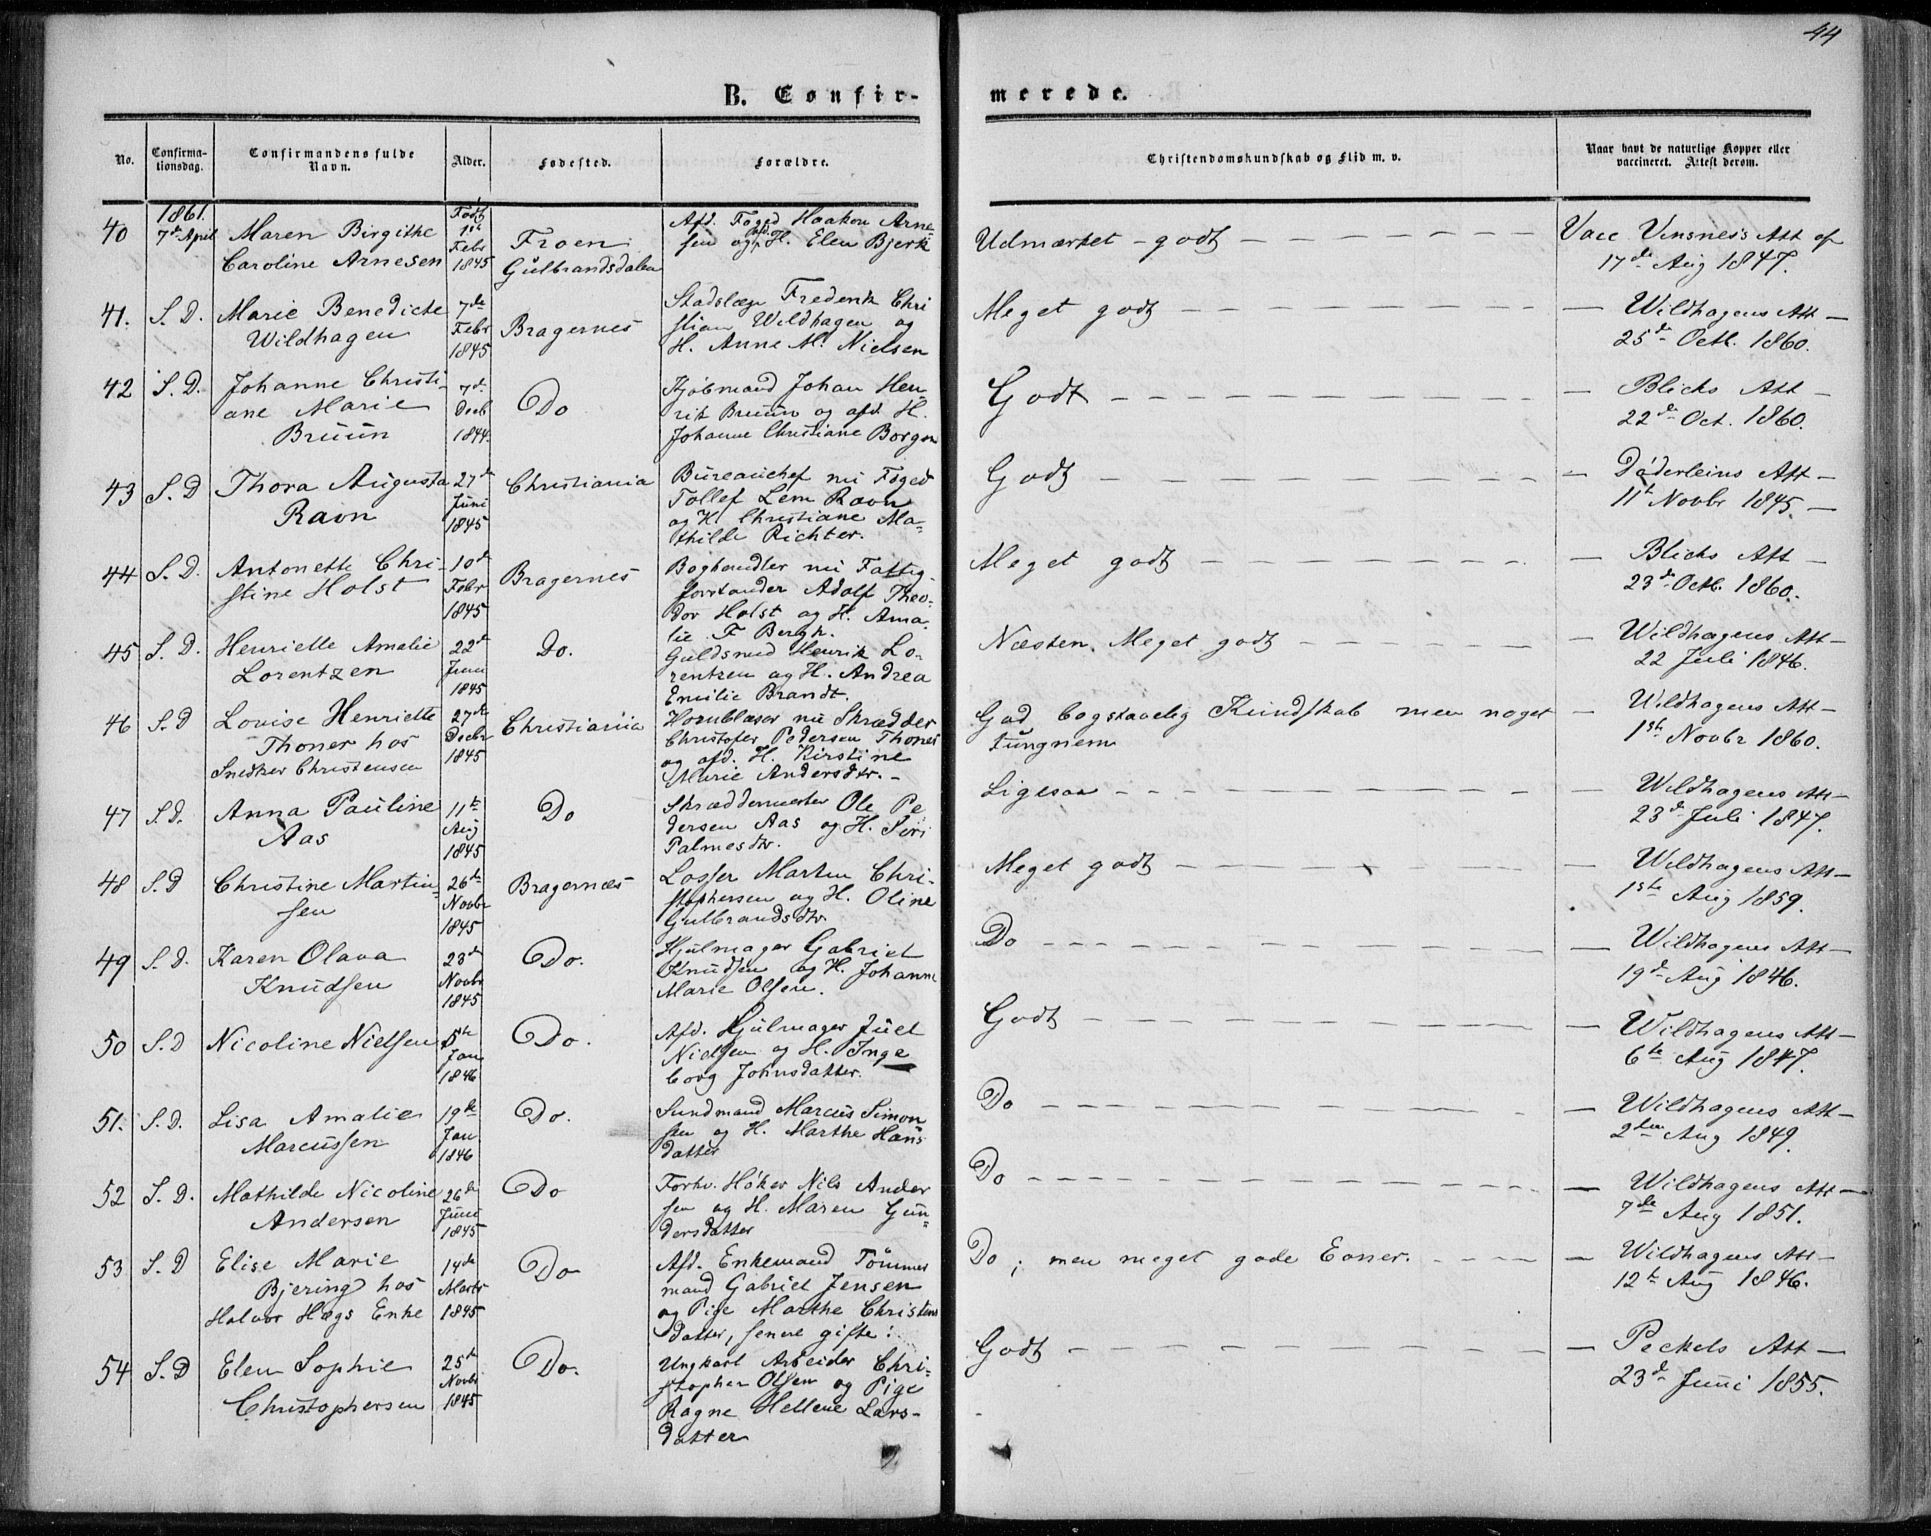 44
B. Confirmerede.
No.
Confirma-
tionsdag.
Confirmandens fulde
Navn.
Alder.
Fødested.
Forældre.
Christendomskundskab og Flid m. v.
Naar havt de naturlige Kopper eller
vaccineret. Attest derom.
1861.
40 7de April Maren Birgithe
Caroline Arnesen
Født
1ste
Febr
1845
Froen
Gulbrandsdalen
Afd. Foged Haakon Arne-
sen og afd. H. Elen Bjerk
Udmærket godt
Vacc Vensness Att af
17de Aug 1847.
41. S. D. Marie Benedicte
Wildhagen
7de
Febr
1845
Bragernes
Stadslæge Frederik Chri
stian Wildhagen og
H. Anne M. Nielsen
Meget godt
Wildhagens Att
25de Octb. 1860.
42 S. D. Johanne Christi-
ane Marie
Bruun
7d.
Decb
1844.
Do
Kjøbmand Johan Hen
rik Bruun og afd. H.
Johanne Christiane Borgen
Godt
Blichs Att
22de Oct. 1860.
43 S. D Thora Augusta
Ravn
27de
Juni
1845
Christiania
Bureauchef nu Foged
Tollef Lem Ravn
og H. Christiane Ma-
thilde Richter.
Godt
Døderleins Att
11te Novbr 1845.
44 S. D. Antonette Chri-
stine Holst
10de
Febr
1845
Bragernes
Boghandler nu Fattig-
forstander Adolf Theo-
dor Holst og H. Ama-
lie F Bergh.
Meget godt
Blichs Att
23de Octb. 1860.
45 S. D. Henriette Amalie
Lorentzen
22de
Juni
1845
Do.
Guldsmed Henrik Lo-
rentzen og H. Andrea
Emilie Brandt.
Næsten Meget godt
Wildhagens Att
22 Juli 1846.
46 S. D Lovise Henriette
Thoner hos
Snedker Christensen
27de
Decbr
1845
Christiania
Hornblæser nu Skrædder
Christofer Pedersen Thoner
og afd. H. Kirstine
Marie Andersdtr.
God bogstavelig Kundskab men noget
tungnem
Wildhagens Att
1ste Novbr 1860.
47 S. D. Anna Pauline
Aas
11te
Aug
1845
Do
Skræddermester Ole Pe
dersen Aas og H. Siri
Palmesdtr.
Ligesaa
Wildhagens Att
23de Juli 1847.
48 S. D Christine Martin-
sen
26de
Novbr
1845
Bragernæs
Losser Martin Chri-
stophersen og H. Oline
Gulbrandsdtr
Meget godt
Wildhagens Att
1ste Aug 1859.
49 S. D. Karen Olava
Knudsen
23de
Novbr
1845
Do.
Hjulmager Gabriel
Knudsen og H. Johanne
Marie Olsen.
Do
Wildhagens Att
19de Aug 1846.
50 S. D Nicoline Nielsen
5te
Jan
1846
Do.
Afd. Hjulmager Juel
Nielsen og H. Inge
borg Johnsdatter.
Godt
Wildhagens Att
6te Aug 1847.
51. S. D. Lisa Amalie
Marcussen
19de
Jan
1846
Do.
Sundmand Marcus Simon
sen og H. Marthe Hans
datter
Do
Wildhagens Att
2den Aug 1849.
52 S. D. Mathilde Nicoline
Andersen
26de
Juni
1845
Do
Forhv. Høker Nils Ander
sen og H. Maren Gun-
dersdatter
Do
Wildhagens Att
7de Aug 1851.
53 S. D Elise Marie
Bjering hos
Halvor Høgs Enke
14de
Marts
1845
Do
Afd. Enkemand Tømmer
mand Gabriel Jensen
og Pige Marthe Christens
datter, senere gifte.
Do; men meget gode Evner.
Wildhagens Att
12te Aug 1846.
54 S. D Elen Sophie
Christophersen
25de
Novbr
1845
Do.
Ungkarl Arbeider Chri-
stopher Olsen og Pige
Ragne Hellene Lars-
datter
Godt
Peckels Att
23de Juni 1855.